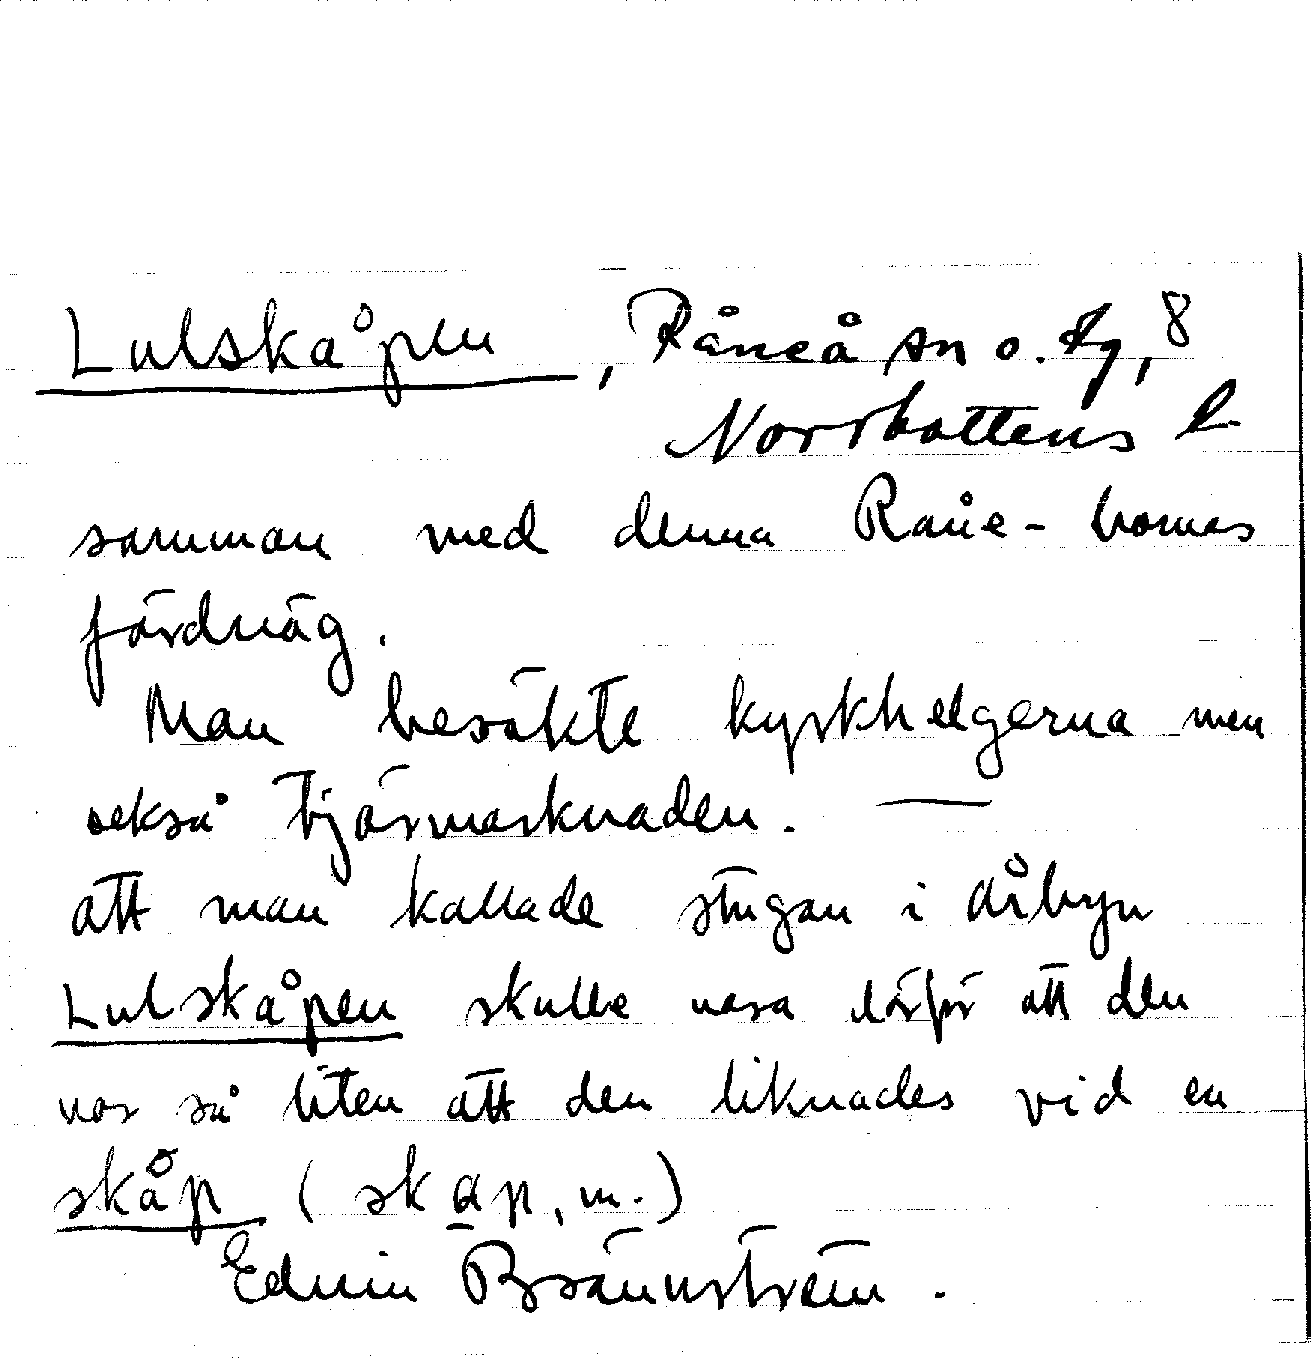 Lulskåpen, Råneå sn o. tg, 8
Norrbottens l.
samman med denna Råne-bornas
färdväg.
Man besökte kyrkhelgerna men
också tjärmarknaden. —
att man kallade stugan i Åbyn
Lulskåpen skulle vara därför att den
var så liten att den liknades vid en
skåp (skåp, m.)
Edvin Brännström.